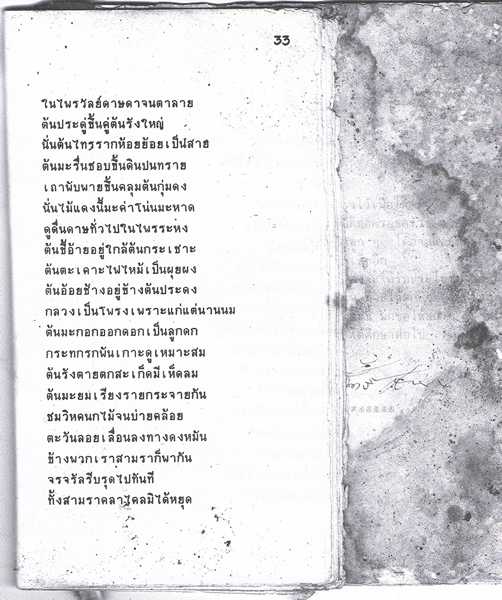 33
ในไพรวัลย์ดาษดาจนตาลาย
ต้นประดู่ขึ้นคู่ต้นรังใหญ่
นั่นต้นไทรรากห้อยย้อยเป็นสาย
ต้นมะรื่นชอบขึ้นดินปนทราย
เถาพันพายขึ้นคลุมต้นกุ่มดง
นั่นไม้แดงนี้มะค่าโน่นมะหาด
ดูดื่นดาษทั่วไปในไพรระหง
ต้นขี้อ้ายอยู่ใกล้ต้นกระเชาะ
ต้นตะเคาะไฟไหม้เป็นผุยผง
ต้นอ้อยช้างอยู่ข้างต้นประดง
กลวงเป็นโพรงเพราะแก่แต่นานนม
ต้นมะกอกออกดอกเป็นลูกดก
กระทกรกพันเกาะดูเหมาะสม
ต้นรังตายตกสะเก็ดมีเห็ดลม
ต้นมะยมเรียงรายกระจายกัน
ชมวิหคนกไม้จนบ่ายคล้อย
ตะวันลอยเลื่อนลงทางดงหมัน
ข้างพวกเราสามราก็พากัน
จรจรัลรีบรุดไปทันที
ทั้งสามราคลาไคลมิได้หยุด